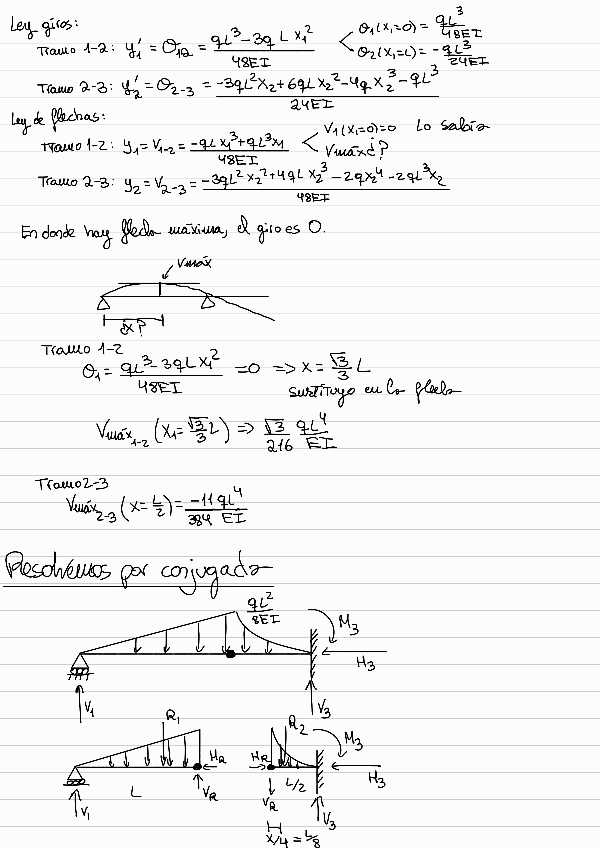 Ley giros:
Tramo 1-2: y₁' = θ₁₂ = (qL³ - 3qLx₁²)/48EI < θ₁(x₁=0) = qL³/48EI
θ₂(x₁=L) = -qL³/24EI
Tramo 2-3: y₂' = θ₂₋₃ = (-3qL²x₂ + 6qLx₂² - 4qx₂³ - qL³)/24EI
Ley de flechas:
Tramo 1-2: y₁ = v₁₋₂ = (-qLx₁³ + qL³x₁)/48EI < v₁(x₁=0)=0 Lo sabía
Vmáx ¿?
Tramo 2-3: y₂ = v₂₋₃ = (-3qL²x₂² + 4qLx₂³ - 2qx₂⁴ - 2qL³x₂)/48EI
En donde hay flecha máxima, el giro es 0.
Vmáx
¿x?
Tramo 1-2
θ₁ = (qL³ - 3qLx₁²)/48EI = 0 => x = √3/3 L
sustituyo en la flecha
Vmáx₁₋₂ (x₁ = √3/3 L) => √3/216 qL⁴/EI
Tramo 2-3
Vmáx₂₋₃ (x = L/2) = -11qL⁴/384 EI
Resolvemos por conjugada
qL²/8EI
M₃
H₃
V₁ V₃
R₁ R₂
M₃
H_R H_R H₃
L L/2
V₁ V_R V_R V₃
x/4 = L/8